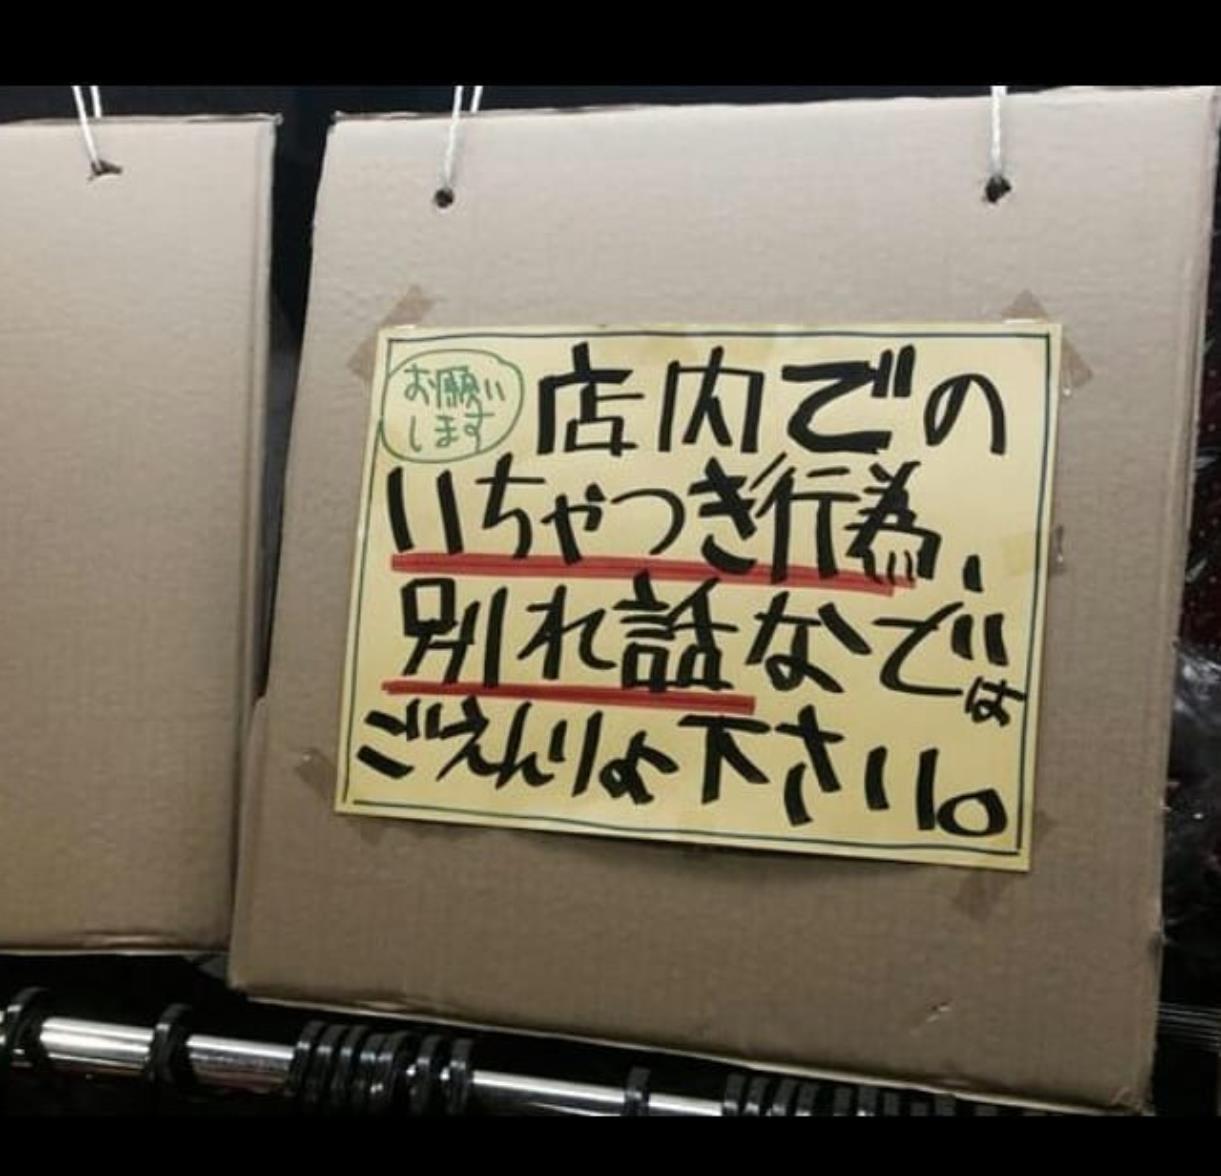 お願い
します
店内での
いちゃつき行為、
別れ話などは
ごえんりょ下さい。